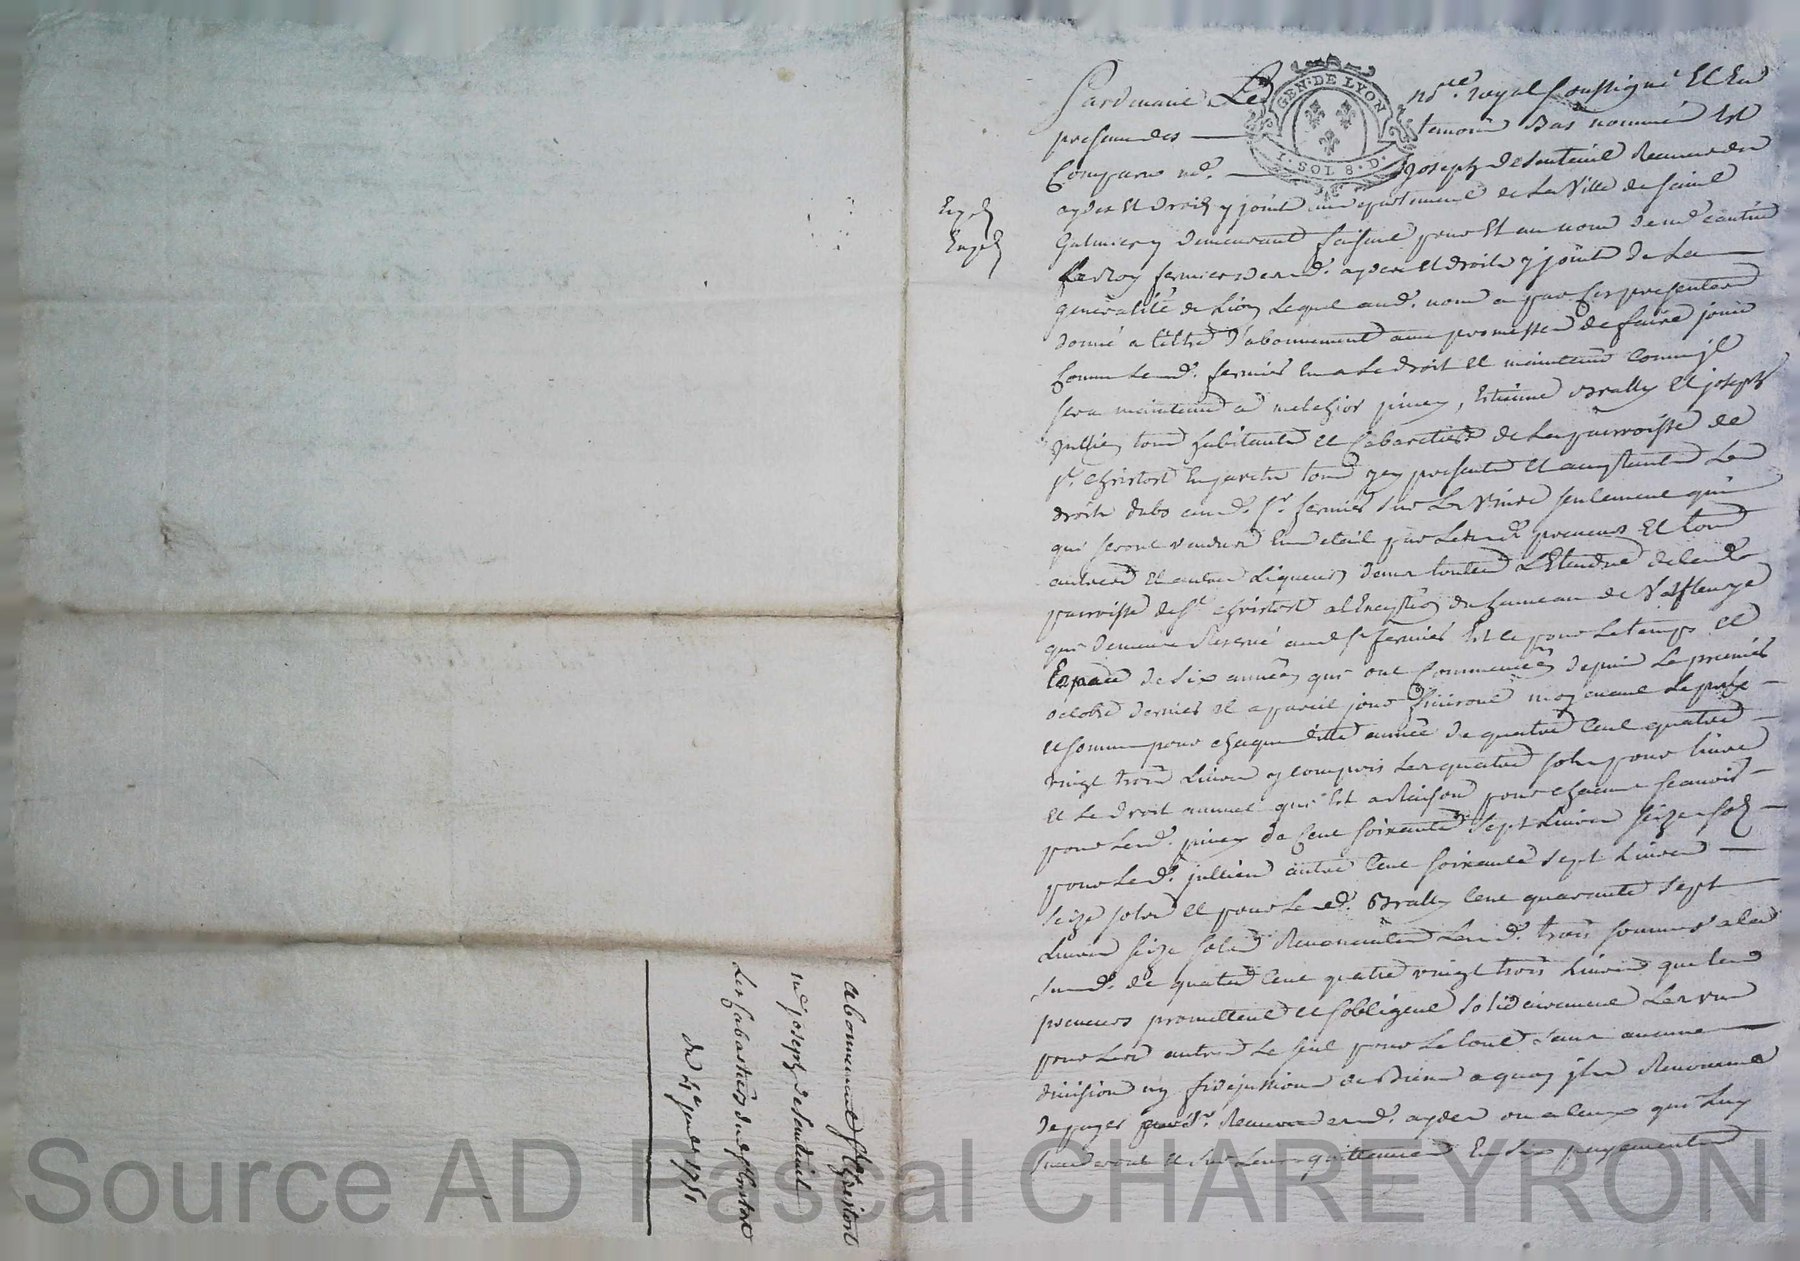 Pardevant Le no.re royal soussigné Et En
presence des temoins Bas nommés Est
Comparu m.e Joseph de Santeuil Receveur des
aydes et droits y joints au departement de La Ville de saint
Galmier y demeurant faisant pour Et au nom de m.e
LeRoy fermier desd. aydes et droits y joints de La
generalité de Lion Lequel aud. nom a par Ces presentes
donné a tiltre d'abonnement avec promesse de faire jouir
Comme Led. fermier En a Le droit et maintenir Comme jl
sera maintenu a melchior piney, Estienne Brally et joseph
Jullien tous habitants et Cabaretiers de La parroisse de
s.t Christost En jarets tous jcy presents et acceptants Les
droits dubs aud. s.r fermier sur Le Vin seulement qui
qui seront vendus En detail par Lesd. preneurs et tous
autres et autres Liqueurs dans toutes L'Etendue de lad.
parroisse de s.t Christost a l'Exception du hameau de Valfleurye
qui demeure Reservé aud. s.r fermier Et ce pour Le temps et
Espace de six années qui ont Commencées depuis Le premier
octobre dernier et a pareil jour finiront moyenant Le prix
et somme pour chaque ditte année de quatre Cent quatre
vingt trois Livres y compris Les quatre sols pour livre
et Le droit annuel qui Est a Raison pour chacun scavoir
pour Led. piney de Cent soixante sept Livres seize sols
pour Led. jullien autre Cent soixante sept Livres
seize sols et pour Led. Brally Cent quarante sept
Livres seize sols Revenantes Lesd. trois sommes a la
sud. de quatre Cent quatre vingt trois Livres que les
preneurs promettent et s'obligent solidairement Les uns
pour Les autres Le seul pour Le tout sans aucune
division ny fidejussion de Biens a quoy jls Renoncent
de payer aud. s.r Receveur desd. aydes ou a Ceux qui Luy
succederont et sur Leurs quittances En six payements
abonnement s.t Christost
m.e joseph de Santeuil
Les Cabartiers de s.t Christost
du 4.e janvier 1751
GEN. DE LYON
1. SOL 8. D.
Source AD Pascal CHAREYRON